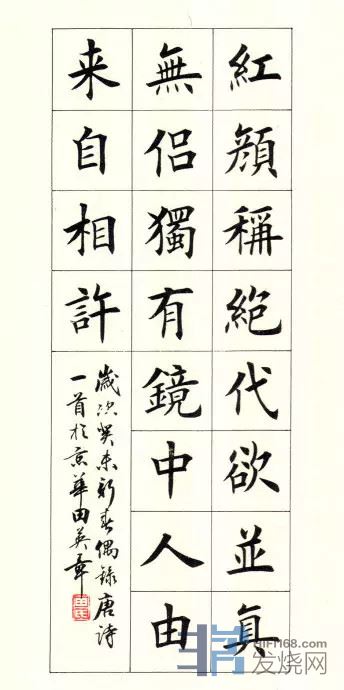 紅顔稱絶代欲並真
無侣獨有鏡中人由
来自相許
歲次癸未新春偶錄唐诗
一首於京華田英章
HIFI168.com
发烧网